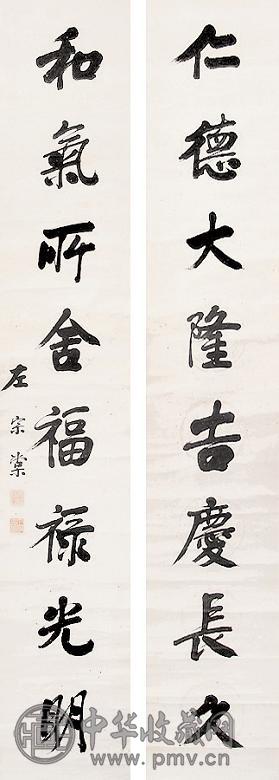 仁德大隆吉慶長久
和氣所舍福祿光明
左宗棠
中华收藏网
www.pmv.cn